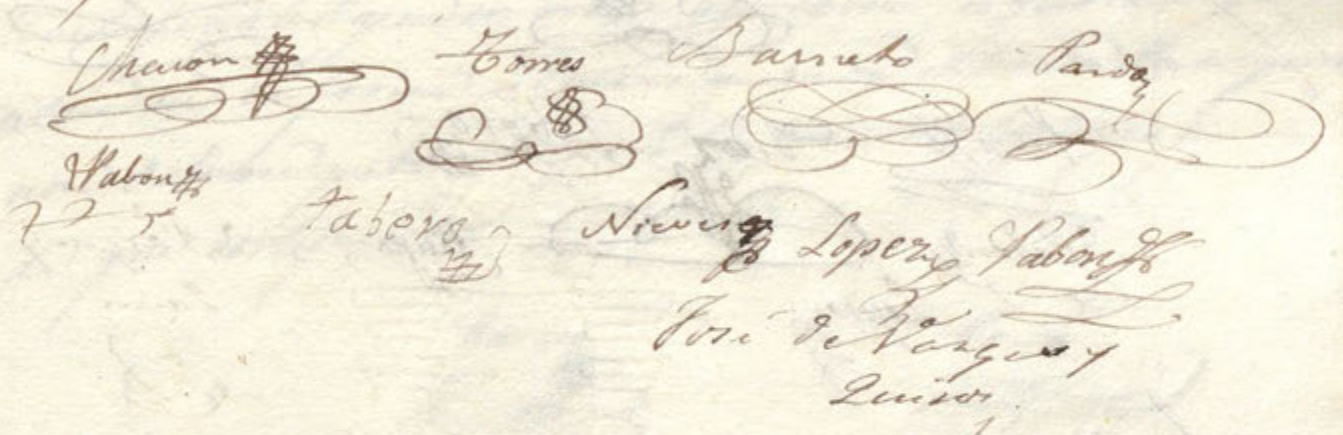 Chacon Torres Barreto Pardo
Pabon
tabera Nieves Lopez Pabon
José de Vargas y